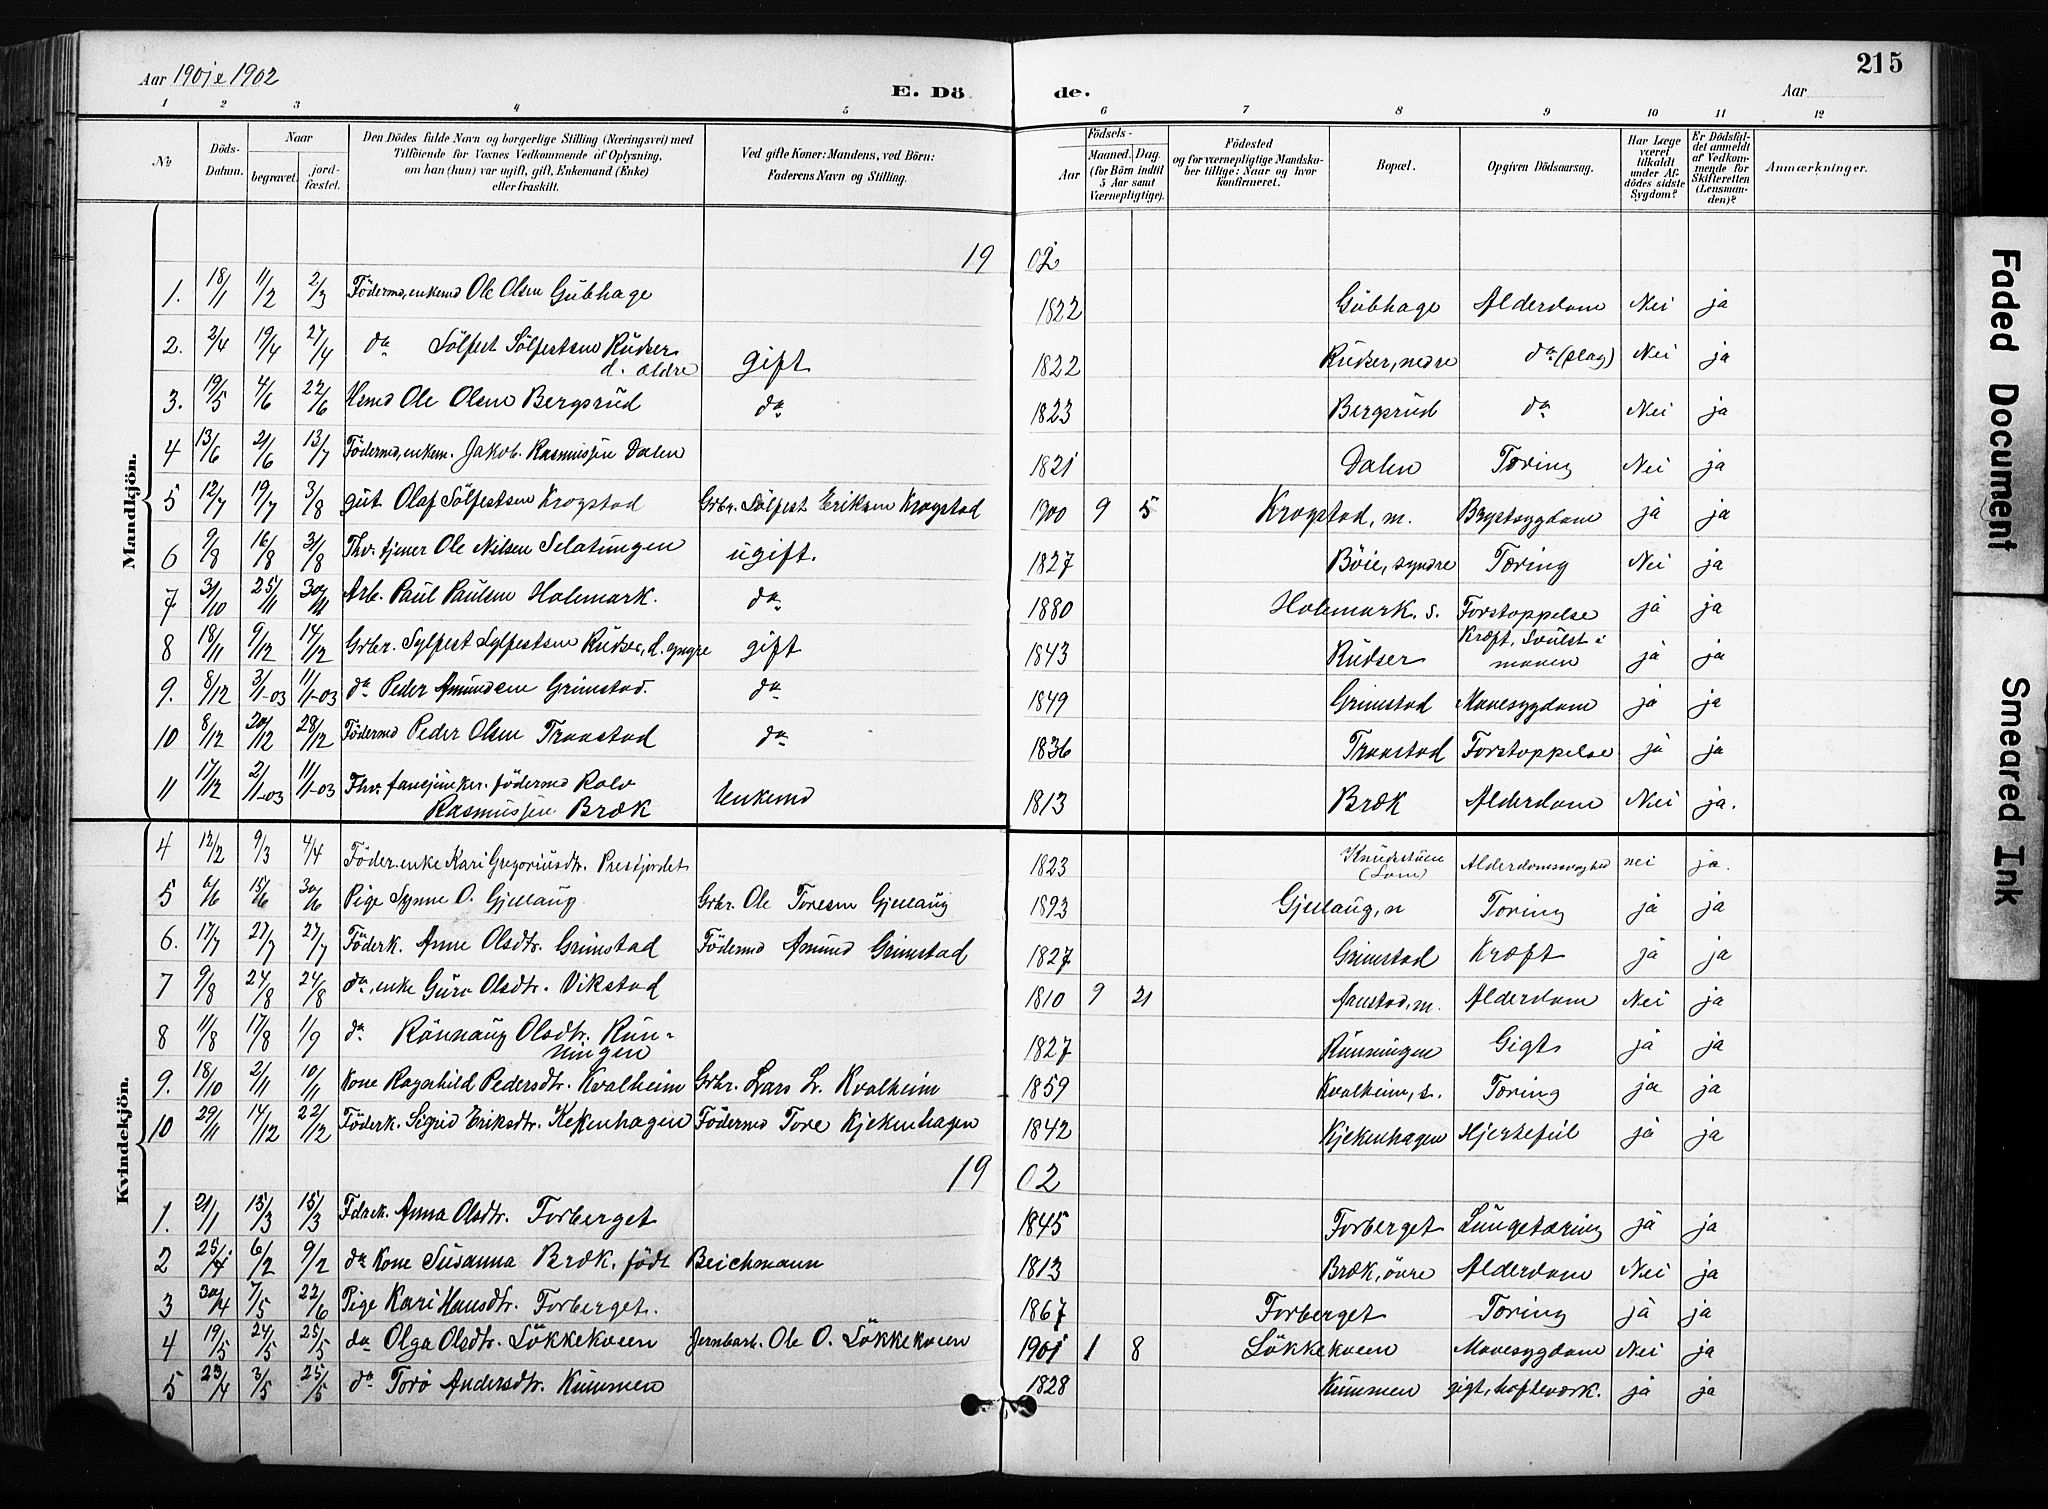 Aar 1901 & 1902
E. Dö
de.
215
Aar
1 2 3 4 5 6 7 8 9 10 11 12
No
Döds-Datum.
Naar
begravet.
jord-fæstet.
Den Dödes fulde Navn og borgerlige Stilling (Næringsvei) med
Tilföiende for Voxnes Vedkommende af Oplysning,
om han (hun) var ugift, gift, Enkemand (Enke)
eller fraskilt.
Ved gifte Koner: Mandens, ved Börn:
Faderens Navn og Stilling.
Födsels-
Aar
Maaned. Dag.
(for Börn indtil
5 Aar samt
Værnepligtige).
Födested
og for værnepligtige Mandska-
ber tillige: Naar og hvor
konfirmeret.
Bopæl.
Opgiven Dödsaarsag.
Har Læge
været
tilkaldt
under Af-
dödes sidste
Sygdom?
Er Dödsfal-
det anmeldt
af Vedkom-
mende for
Skifteretten
(Lensman-
den)?
Anmærkninger.
Mandkjön.
19 02
1. 18/1 11/2 2/3 Födermd, enkemd Ole Olsen Gubhage 1822 Gubhage Alderdom Nei ja
2. 2/4 19/4 27/4 do Sölfest Sölfestsen Rudser d. ældre gift 1822 Rudser, nedre do (slag) Nei ja
3. 19/5 4/6 22/6 Hsmd Ole Olsen Bergsrud do 1823 Bergsrud do Nei ja
4 13/6 21/6 13/7 Födermd, enkem. Jakob Rasmussen Dalen 1821 Dalen Tæring Nei ja
5 12/7 19/7 3/8 gut Olaf Sölfestsen Krogstad Grbr. Sölfest Eriksen Krogstad 1900 9 5 Krogstad, m. Brystsygdom ja ja
6 9/8 16/8 31/8 Thv. tjener Ole Nilsen Selatungen ugift. 1827 Böie, syndre Tæring Nei ja
7 31/10 25/11 30/11 Arb. Paul Paulsen Holemork. do 1880 Holemork. s. Forstoppelse ja ja
8 18/11 9/12 14/12 Grbr. Sylfest Sylfestsen Rudser, d. yngre gift 1843 Rudser Kræft, Svulst i maven ja ja
9. 8/12 3/1-03 11/1-03 do Peder Amundsen Grimstad. do 1849 Grimstad Mavesygdom ja ja
10 8/12 20/12 28/12 Födermd Peder Olsen Tronstad do 1836 Tronstad Forstoppelse ja ja
11 17/12 2/1-03 11/1-03 Thv. fanejunker. födermd Rolv
Rasmussen Bræk Enkemd 1813 Bræk Alderdom Nei ja.
Kvindekjön.
4 12/2 9/3 4/4 Föder. enke Kari Gregoriusdtr. Prestjordet 1823 Knudsstuen (Lom) Alderdomssvaghed nei ja.
5 6/6 15/6 30/6 Pige Synne O. Gjellaug Grbr. Ole Toresen Gjellaug 1893 Gjellaug, n Tæring ja ja
6. 17/7 27/7 27/7 Föderk. Anne Olsdtr. Grimstad Födermd Amund Grimstad 1827 Grimstad Kræft ja ja
7 9/8 24/8 24/8 do, enke Guro Olsdtr. Vikstad 1810 9 21 Aanstad, m. Alderdom Nei ja
8 11/8 17/8 1/9 do Rönnaug Olsdtr. Run-
ningen 1827 Runningen Gigt ja ja
9. 18/10 2/11 10/11 Kone Ragnhild Pedersdtr. Kvalheim Grbr. Lars L. Kvalheim 1859 Kvalheim, s. Tæring ja ja
10 29/11 14/12 22/12 Föderk. Sigrid Eriksdtr. Kekenhagen Födermd Tore Kjekenhagen 1842 Kjekenhagen Hjertefeil ja ja
19 02
1. 21/1 15/3 15/3 Fdrek. Anna Olsdtr. Forberget 1845 Forberget Lungetæring ja ja
2 25/1 6/2 9/2 do Kone Susanna Bræk, född Beichmann 1813 Bræk, övre Alderdom Nei ja
3 30/4 7/5 22/6 Pige Kari Hansdtr. Forberget. 1867 Forberget Tæring ja ja
4 19/5 24/5 25/5 do Olga Olsdtr. Lökkekveen Jernbarb. Ole O. Lökkekveen 1901 1 8 Lökkekveen Mavesygdom Nei ja
5 23/4 3/5 25/5 do Torö Andersdtr. Kummen 1828 Kummen gigt, hofteverk. ja ja
Faded Document
Smeared Ink